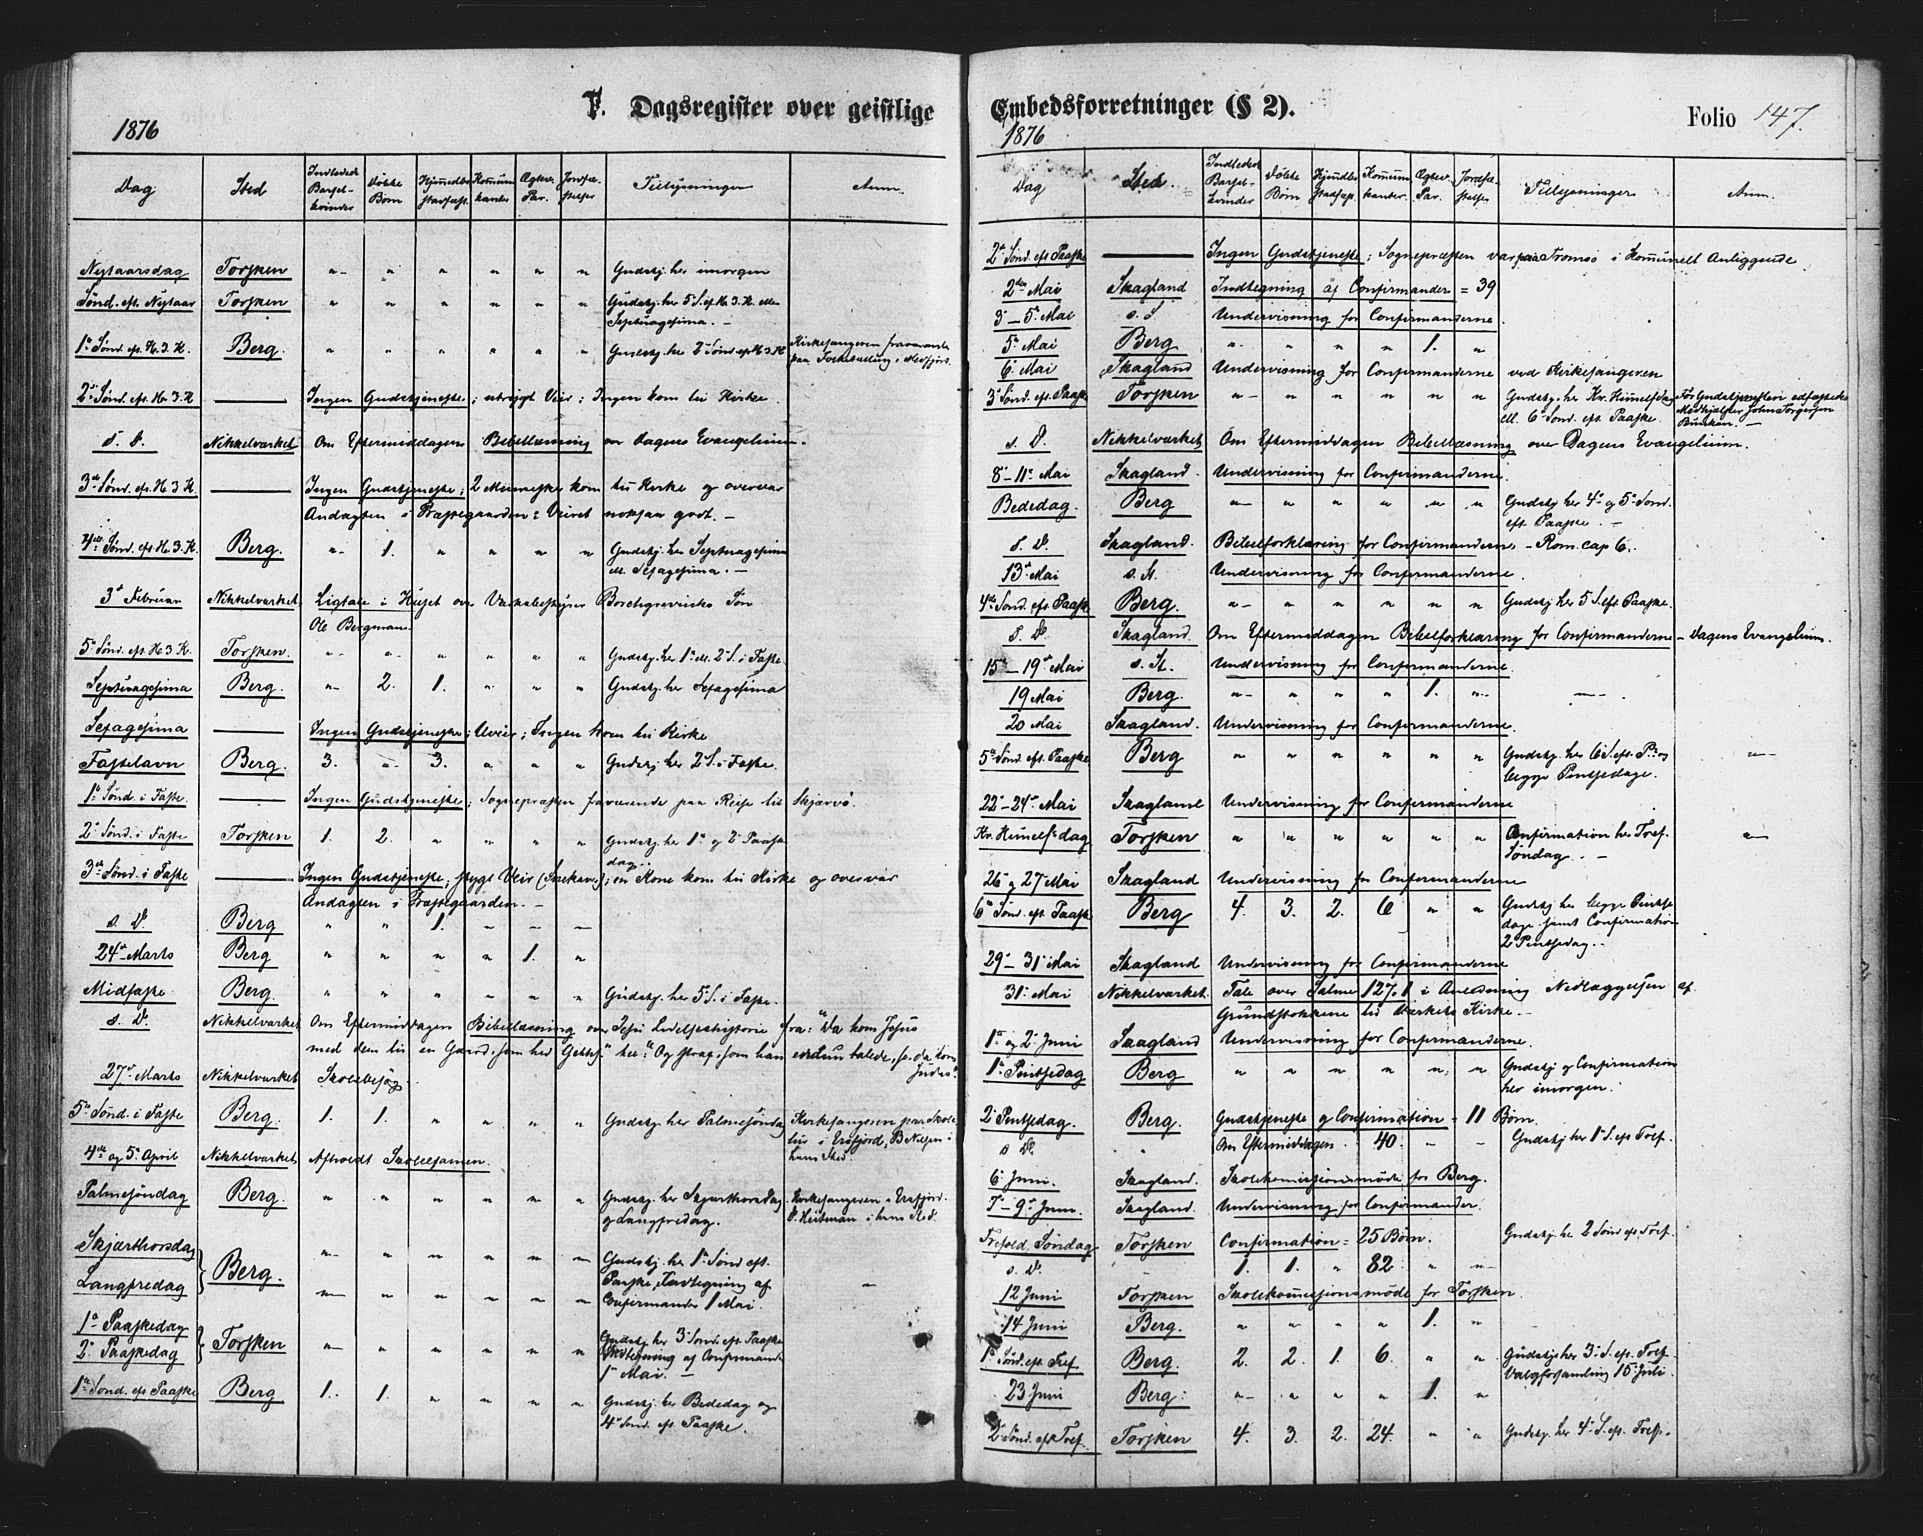 F. Dagsregister over geistlige
1876
Dag Sted Indledede Barselkvinder Døbte Børn Hjemmedbs Stadfæst. Kommunikanter Ægtev. Par. Jordfæstelser Tillysninger Anm.
Nytaarsdag Torsken " " " " " " Gudstj. her imorgen
Sønd. eft. Nytaar Torsken " " " " " " Gudstj. her 5 S. ef. H. 3. K. eller
Septuagesima. -
1ste Sønd. eft. H. 3. K. Berg. " " " " " " Gudstj. her 2 Sønd. eft H. 3. K. Kirkesangeren fraværende
paa i Medfjord.
2den Sønd. eft. H. 3. K Ingen Gudstjeneste; utrygt Veir; Ingen kom til Kirke.
s. D. Nikkelværket Om Eftermiddagens Bibellæsning over Dagens Evangelium.
3die Sønd. eft. H. 3 K. Ingen Gudstjeneste; 2 Mennesker kom til Kirke og overvar
Andagten i Præstegaarden: Veiret noksaa godt. -
4de Sønd. eft. H. 3. K. Berg. " 1. " " " " Gudstj. her Septuagesima
ell. Sexagesima. -
3die Februar Nikkelværket Ligtale i Huset over Værksbestyrer Borchgrevinks Søn
Ole Bergmann.
5te Sønd. eft. H. 3 K. Torsken. " " " " " " Gudstj. her 1ste ell. 2 S. i Faste.
Septuagesima Berg. " 2. 1. " " " Gudstj. her Sexagesima
Sexagesima Ingen Gudstjeneste; Uveir; Ingen kom til Kirke
Fastelavn Berg. 3. " 3. " " " Gudstj. her 2 S. i Faste.
1ste Sønd. i Faste. Ingen Gudstjeneste; Sognepræsten fraværende paa Reise til Skjærvø.
2den Sønd. i Faste Torsken 1. 2. " " " " Gudstj. her 1ste og 2den Paaske
dag..
3die Sønd. i Faste Ingen Gudstjeneste; stygt Veir (Snekave); en Kone kom til Kirke og overvar
Andagten i Præstegaarden. -
s. D. Berg " " 1. " " "
24de Marts Berg " " " " 1. "
Midfaste Berg. " " " " " " Gudstj. her 5te S. i Faste.
s. D. Nikkelværket Om Eftermiddagen Bibellæsning over Jesu Lidelseshistorie fra: "Da kom Jesus
med dem til en Gaard, som hed Geths." til: "Og strax, som han endnu talede, se, da kom
Judas".
27de Marts Nikkelværket Skolebesøg.
5te Sønd. i Faste Berg. 1. 1. " " " " Gudstj. her Palmesøndag Kirkesangeren paa Skole
hus i Ersfjord, B. Nielsen i
hans Sted.
4de og 5te April Nikkelværket Afholdt Skoleexamen.
Palmesøndag Berg. " " " " " " Gudstj. her Skjærthorsdag Kirkesangeren i Ersfjord.
og Langfredag. P. Heitman i hans Sted.
Skjærthorsdag Berg. " " " " " " Gudstj. her 1ste Sønd. eft.
Paaske, Indtegning af
Langfredag " " " " " " Confirmander 1 Mai. "
1ste Paaskedag Torsken " " " " " " Gudstj. her 3die Sønd. eft. Paaske
2den Paaskedag Indtegning af Confirmander
1ste Mai. -
1ste Sønd. eft Paaske Berg 1. 1. " " " " Gudstj. her Bededag og
4de Sønd. eft. Paaske.
Embedsforretninger (§ 2).
Folio 147.
1876
Dag Sted. Indlededе Barselkvinder Døbte Børn Hjmdbs Stadfæst. Kommunikanter. Ægtev. Par. Jordfæstelser Tillysninger Anm.
2den Sønd. eft Paaske Ingen Gudstjeneste; Sognepræsten var paa Tromsø i kommunelt Anliggende.
2den Mai Skagland Indtegning af Confirmander = 39
3 - 5te Mai s. S Undervisning for Confirmanderne.
5te Mai Berg " " " " 1. "
6. Mai Skagland Undervisning for Confirmanderne ved Kirkesangeren
3die Sønd. eft. Paaske Torsken " " " " " " Gudstj. her Kr. Himmelfdag Før Gudstjenesten edfæstedes
ell. 6te Sønd. eft. Paaske. Medhjælper Johan Torgersen
s. D. Nikkelværket Om Eftermiddagen Bibellæsning over Dagens Evangelium.
8de - 11te Mai Skagland. Undervisning for Confirmanderne.
Bededag. Berg " " " " " " Gudstj. her 4de og 5te Sønd.
eft. Paaske. -
s. D. Skagland. Bibelforklaring for Confirmanderne - Rom. cap 6.
13de Mai s. St. Undervisning for Confirmanderne.
4de Sønd. eft. Paaske Berg. " " " " " " Gudstj her 5 S. eft. Paaske.
s. D. Skagland. Om Eftermiddagen Bibelforklaring for Confirmanderne - Dagens Evangelium.
15de - 19de Mai s. St. Undervisning for Confirmanderne.
19 Mai Berg. " " " " 1. " "
20 Mai Skagland. Undervisning for Confirmanderne.
5te Sønd. eft. Paaske Berg " " " " " " Gudstj. her 6 S. eft. P. og "
begge Pintsedage.
22de - 24de Mai Skagland Undervisning for Confirmanderne
Kr. Himmelfsdag Torsken " " " " " " Confirmation her Tref. "
Søndag. -
26 og 27 Mai Skagland Undervisning for Confirmanderne
6te Sønd. eft. Paaske Berg 4. 3. 2. 6 " " Gudstj her begge Pintse
dage samt Confirmation
2 Pintsedag.
29de - 31te Mai Skagland Undervisning for Confirmanderne
31te Mai Nikkelværket. Tale over Salme 127,1 i Anledning Nedlæggelsen af
Grundstokkene til Værkets Kirke. -
1ste og 2den Juni Skagland Undervisning for Confirmanderne.
1ste Pintsedag Berg " " " " " " Gudstj og Confirmation
her imorgen.
2den Pintsedag. Berg. Gudstjeneste og Confirmation = 11 Børn.
s D. " Om Eftermiddagen. 40. " " Gudstj her 1ste S. eft Tref.
6 Juni. Skagland. Skolekommissionsmøde for Berg.
7 - 9de Juni. Skagland. Undervisning for Confirmander.
Trefold. Søndag Torsken Confirmation = 25 Børn. Gudstj. her 2 Sønd eft Tref.
s. D. 1. 1. " 82. " "
12 Juni Torsken Skolekommissionsmøde for Torsken.
14 Juni Berg. " " " " 1. "
1ste Sønd. eft Tref Berg. 2. 2. 1. 6. " " Gudstj her 3die S. eft. Tref.
Valgforsamling 15de Juli.
23 Juni Berg. " " " " 1. "
2den Sønd. eft Tref. Torsken 4. 3. 2. 24. " " Gudstj. her 4de S. eft. Tref.